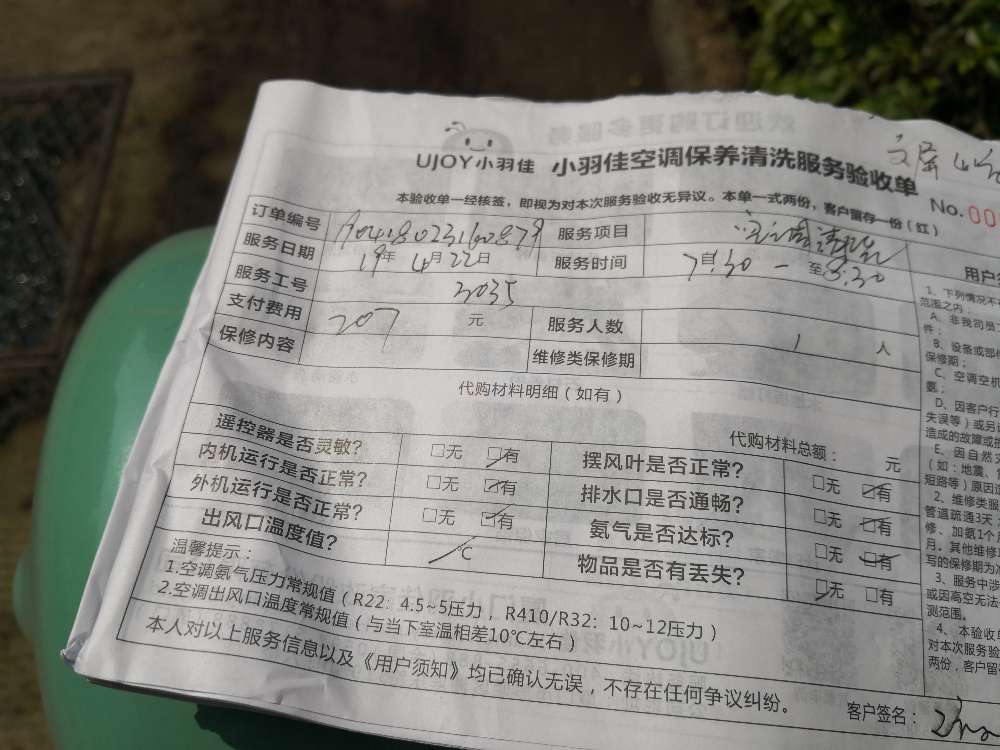 UJOY小羽佳 小羽佳空调保养清洗服务验收单
本验收单一经核签，即视为对本次服务验收无异议。本单一式两份，客户留存一份（红）
No. 00
订单编号 A04180231602879 服务项目
服务日期 19年 4月 22日 服务时间 7:30 — 至 8:30
服务工号 3035
支付费用 207 元 服务人数 1 人
保修内容 维修类保修期
代购材料明细（如有）
代购材料总额： 元
遥控器是否灵敏？ □无 ☑有 摆风叶是否正常？ □无 ☑有
内机运行是否正常？ □无 ☑有 排水口是否通畅？ □无 ☑有
外机运行是否正常？ □无 ☑有 氨气是否达标？ □无 ☑有
出风口温度值？ ℃ 物品是否有丢失？ ☑无 □有
温馨提示：
1.空调氨气压力常规值（R22：4.5~5压力，R410/R32：10~12压力）
2.空调出风口温度常规值（与当下室温相差10℃左右）
本人对以上服务信息以及《用户须知》均已确认无误，不存在任何争议纠纷。
客户签名：
1、下列情况不
范围之内：
A、非我司员工
件；
B、设备或部件
保修期；
C、空调空机
氨；
D、因客户行
失误等）或另
造成的故障或
E、因自然灾
（如：地震、
短路等）原因
2、维修类服
管道疏通3天，
修、加氨1个月
月。其他维修
写的保修期为准
3、服务中涉
或因高空无法
测范围。
4、本验收单
对本次服务验
两份，客户留存